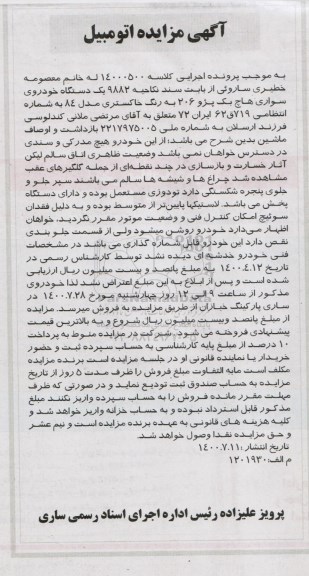 آگهی مزایده اتومبیل
به موجب پرونده اجرایی کلاسه ۱۴۰۰۰۵۰۰ له خانم معصومه
خطیری ساروئی از بابت سند نکاحیه ۹۸۸۲ یک دستگاه خودروی
سواری هاچ بک پژو ۲۰۶ به رنگ خاکستری مدل ۸۴ به شماره
انتظامی ۷۱۹ق۶۲ ایران ۷۲ متعلق به آقای مرتضی ملائی کندلوسی
فرزند ارسلان به شماره ملی ۲۲۱۷۹۷۵۰۰۵ بازداشت و اوصاف
ماشین بدین شرح می باشد: از این خودرو هیچ مدرکی و سندی
در دسترس خواهان نمی باشد وضعیت ظاهری اتاق سالم لیکن
آثار خسارت و بازسازی در چند نقطه‌ای از جمله گلگیرهای عقب
مشاهده شد چراغ ها و شیشه ها سالم می باشند سپر جلو و
جلوی پنجره شکستگی دارد تودوزی مستعمل بوده و دارای دستگاه
پخش می باشد. لاستیکها پایین‌تر از متوسط بوده و به دلیل فقدان
سوئیچ امکان کنترل فنی و وضعیت موتور مقرر نگردید، خواهان
اظهار می‌دارد خودرو روشن میشود ولی از قسمت جلو بندی
نقص دارد این خودرو قابل شماره گذاری می باشد در مشخصات
فنی خودرو خدشه ای دیده نشد توسط کارشناس رسمی در
تاریخ ۱۴۰۰.۴.۱۲ به مبلغ پانصد و بیست میلیون ریال ارزیابی
شده است و پس از ابلاغ به این مبلغ اعتراض نشد لذا خودروی
مذکور از ساعت ۹ الی ۱۲ روز چهارشنبه مورخ ۱۴۰۰.۷.۲۸ در
ساری پارکینگ خزر از طریق مزایده به فروش میرسد. مزایده
از مبلغ پانصد وبیست میلیون ریال شروع و به بالاترین قیمت
پیشنهادی فروخته می شود. شرکت در مزایده منوط به پرداخت
۱۰ درصد از مبلغ پایه کارشناسی به حساب سپرده ثبت و حضور
خریدار یا نماینده قانونی او در جلسه مزایده است برنده مزایده
مکلف است مابه التفاوت مبلغ فروش را ظرف مدت ۵ روز از تاریخ
مزایده به حساب صندوق ثبت تودیع نماید و در صورتی که ظرف
مهلت مقرر مانده فروش را به حساب سپرده واریز نکنند مبلغ
مذکور قابل استرداد نبوده و به حساب خزانه واریز خواهد شد و
کلیه هزینه های قانونی به عهده برنده مزایده است و نیم عشر
و حق مزایده نقدا وصول خواهد شد.
تاریخ انتشار: ۱۴۰۰.۷.۱۱
م الف: ۱۲۰۱۹۳۰
پرویز علیزاده رئیس اداره اجرای اسناد رسمی ساری